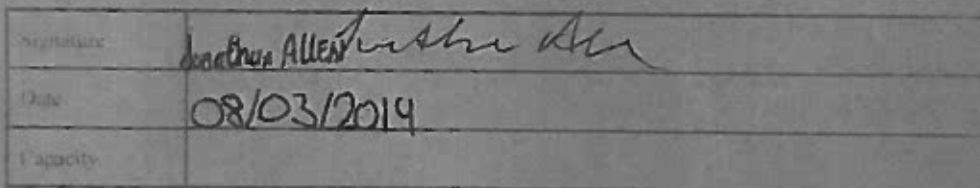 Signature Jonathan ALLEN
Date 08/03/2019
Capacity